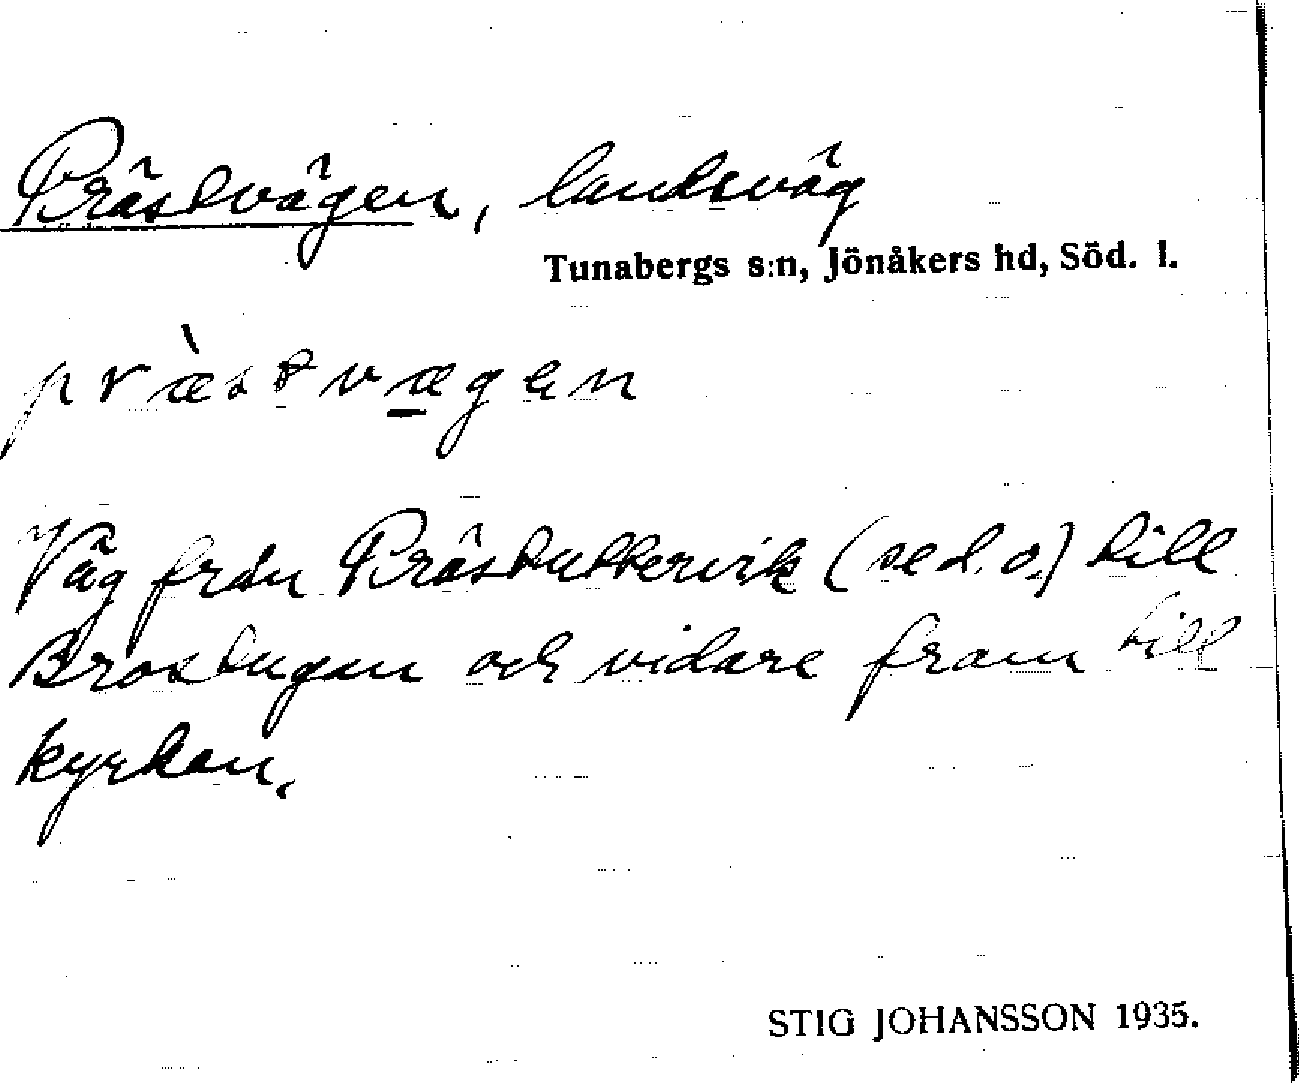 Prästvägen, landsväg
Tunabergs s:n, Jönåkers hd, Söd. l.
præ̀stvægen
Väg från Prästuttervik (se d. o.) till
Brostugan och vidare fram till
kyrkan.
STIG JOHANSSON 1935.